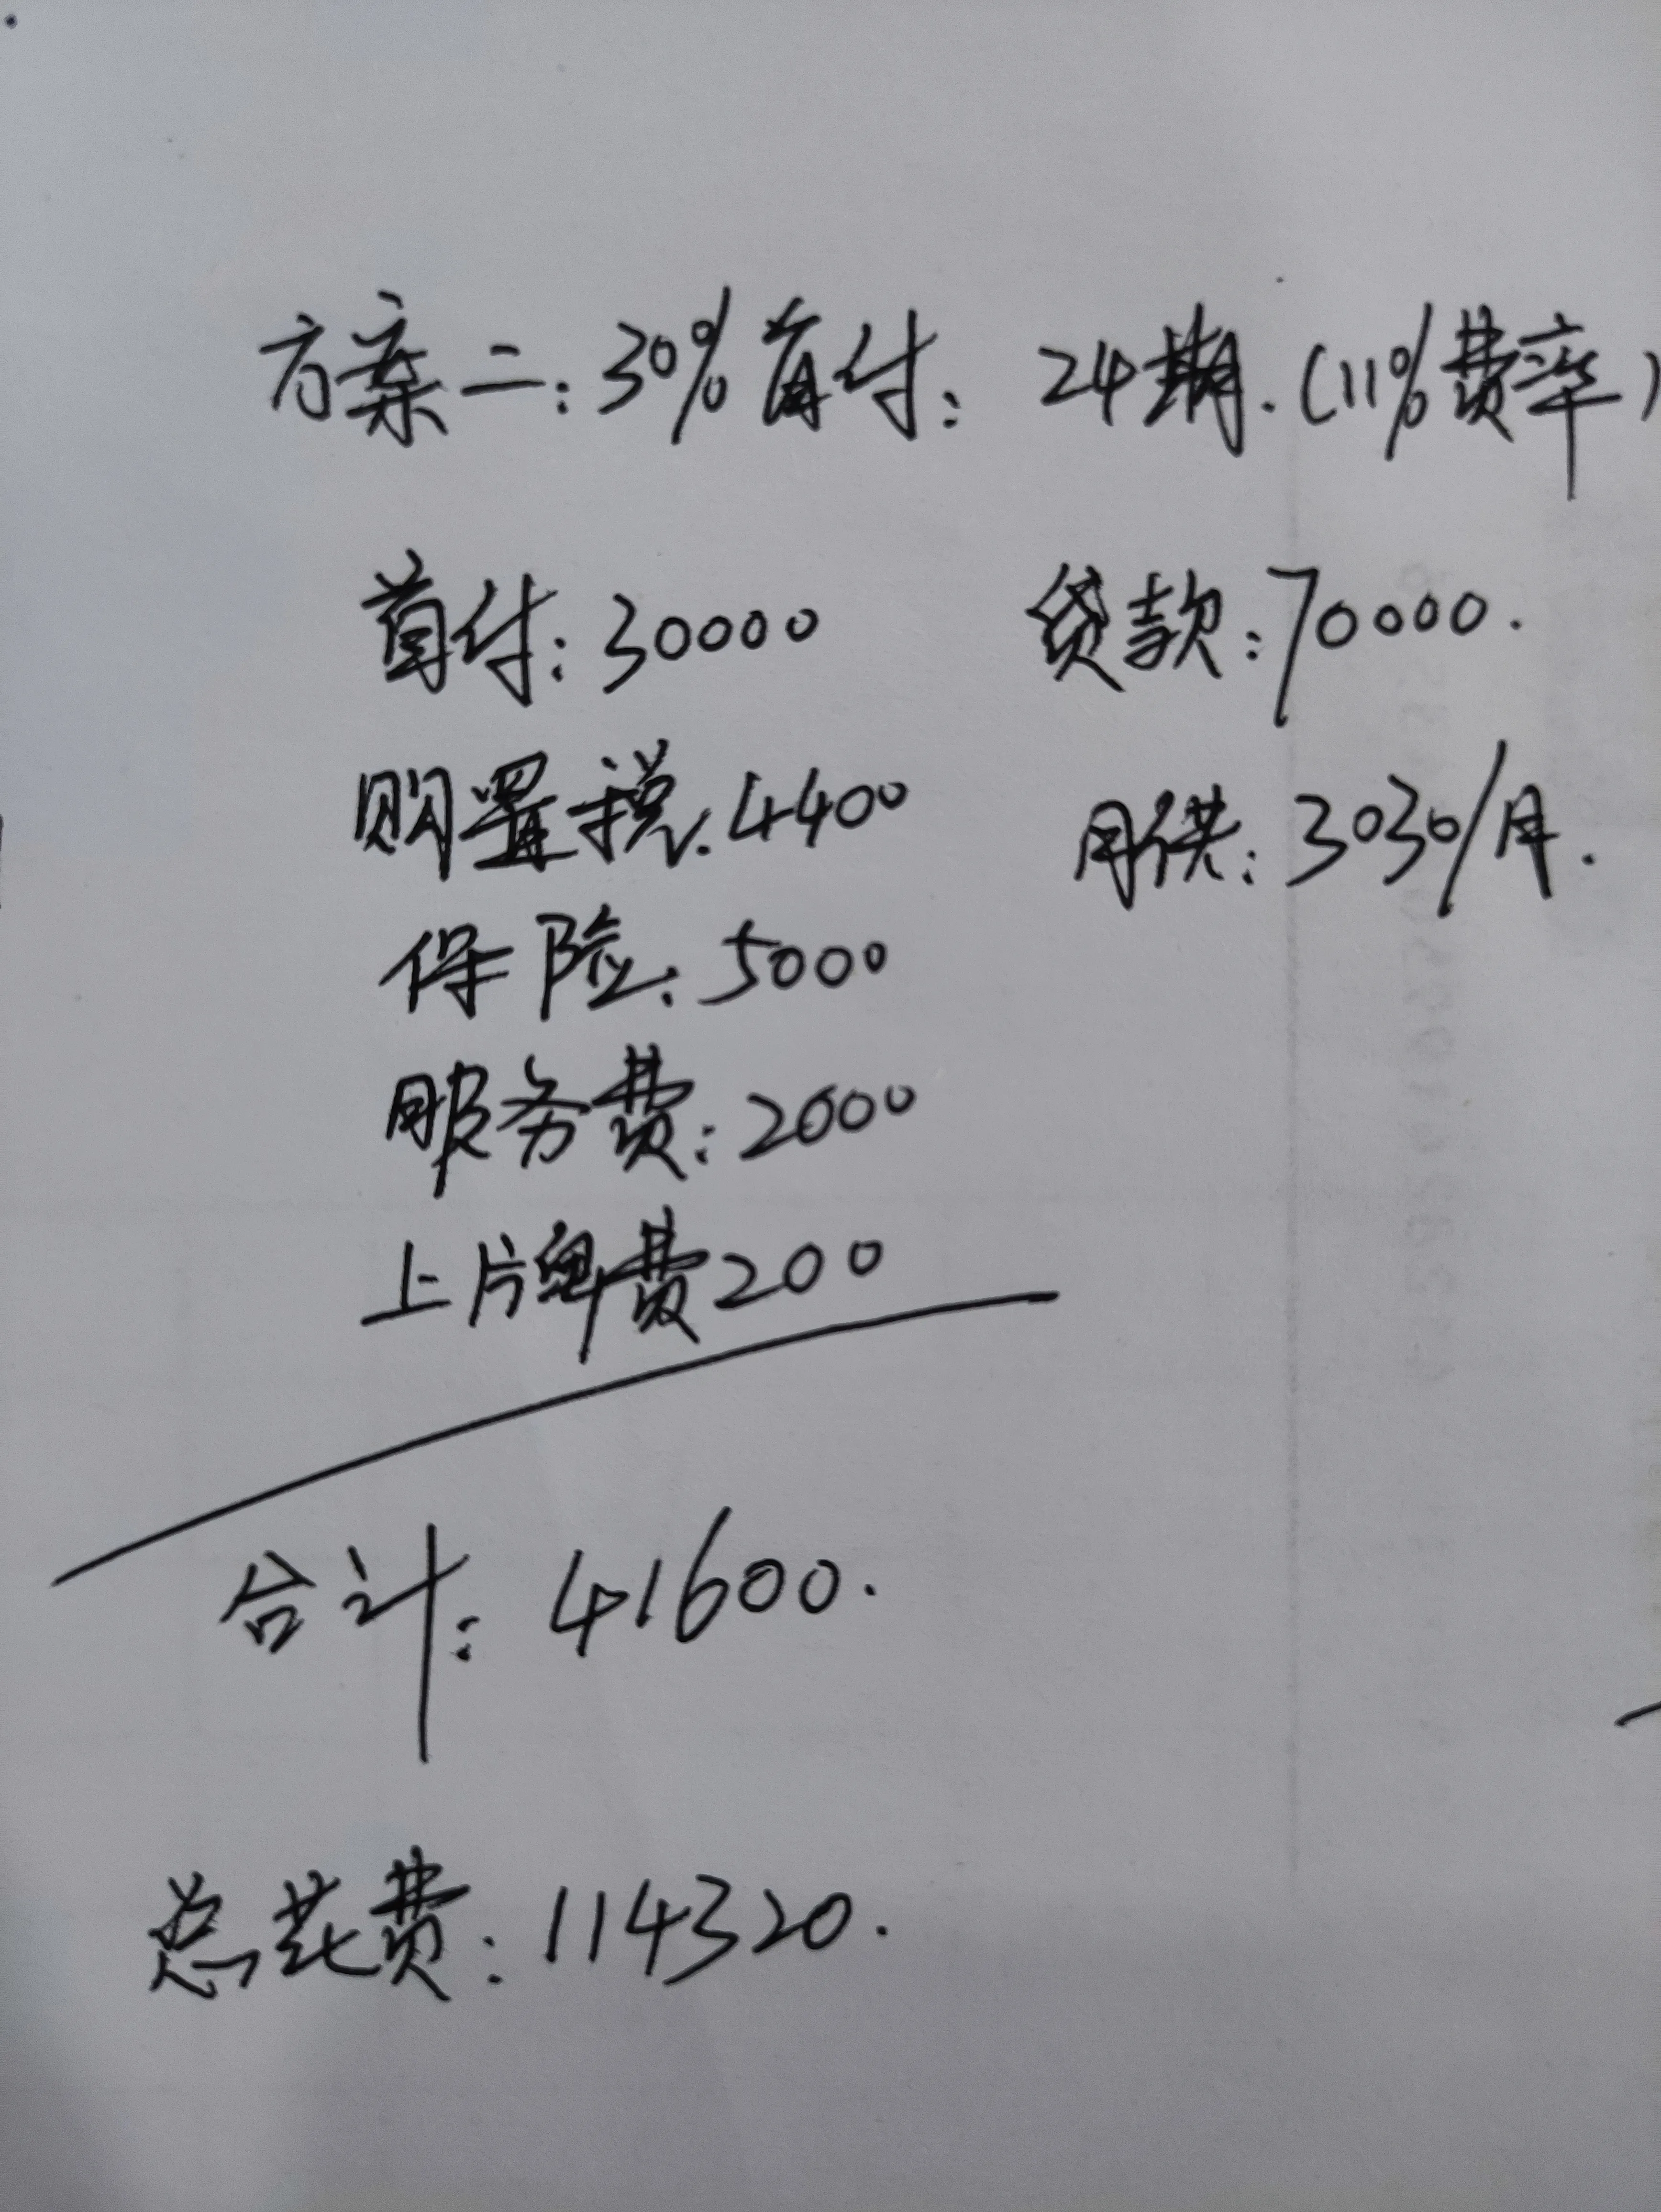 方案二:30%首付: 24期.(11%费率)
首付:30000 贷款:70000.
购置税.4400 月供:3030/月.
保险:5000
服务费:2000
上牌费200
合计:41600.
总花费:114320.